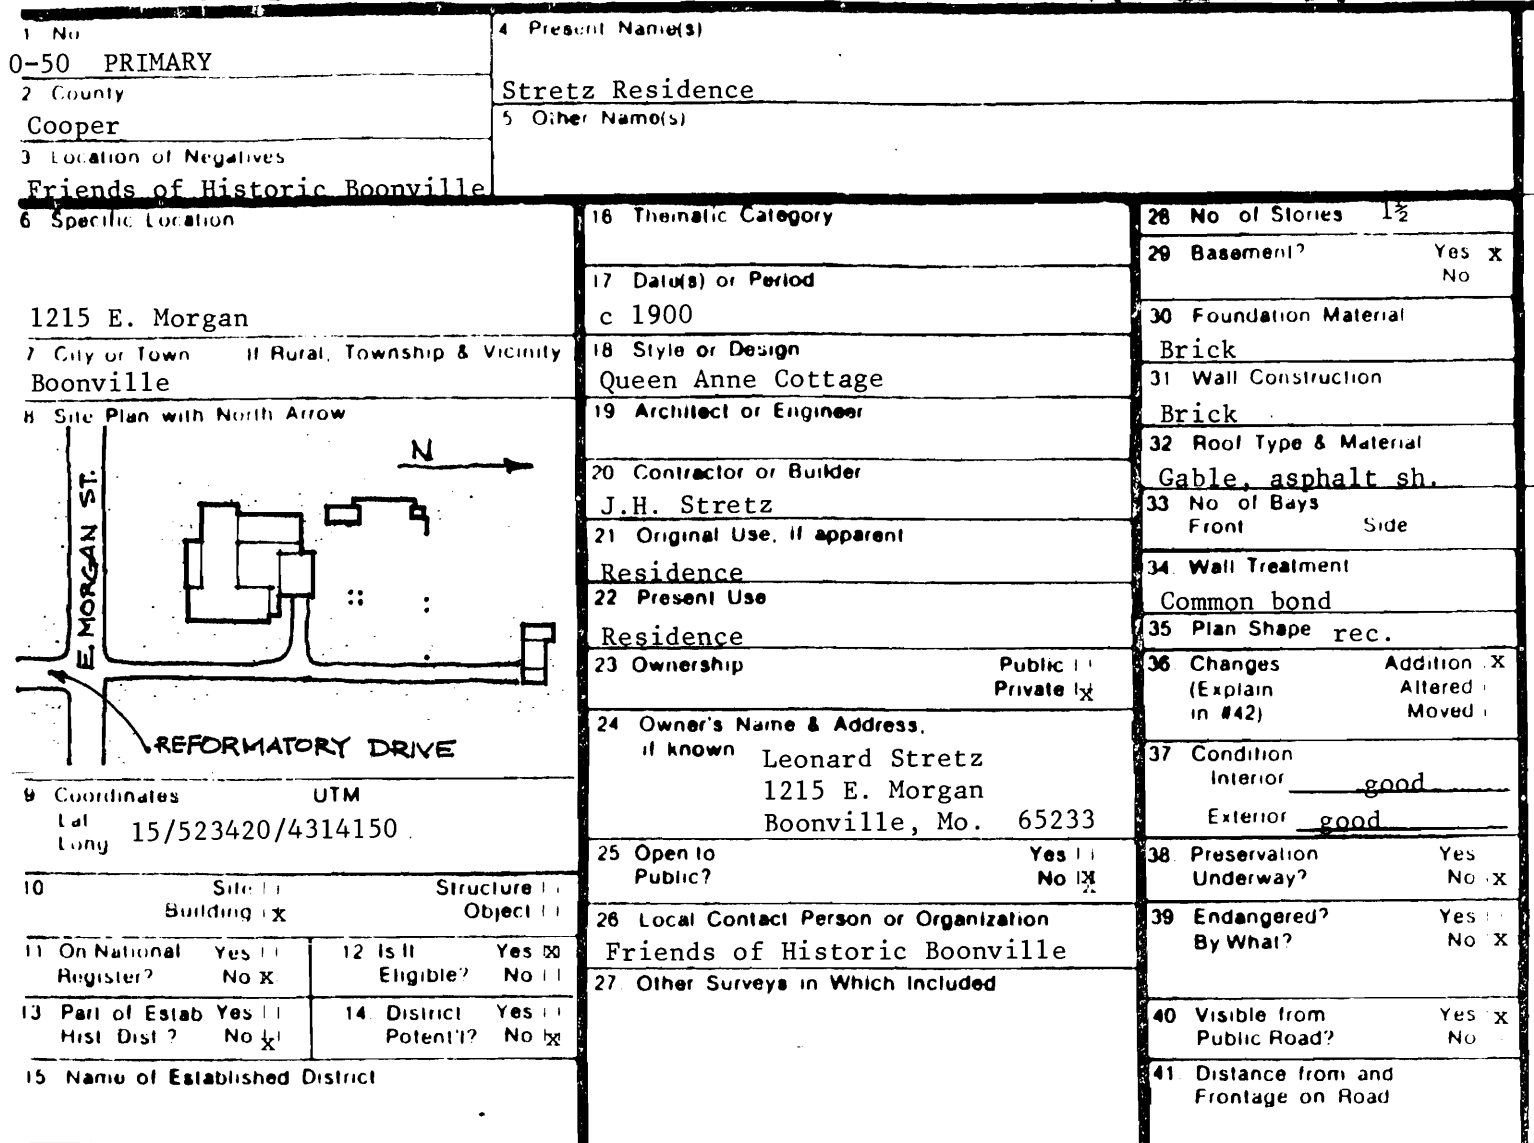 1 No
0-50 PRIMARY
2 County
Cooper
3 Location of Negatives
Friends of Historic Boonville
4 Present Name(s)
Stretz Residence
5 Other Name(s)
6 Specific Location
1215 E. Morgan
7 City or Town If Rural, Township & Vicinity
Boonville
8 Site Plan with North Arrow
N
E. MORGAN ST.
REFORMATORY DRIVE
9 Coordinates UTM
Lat
Long 15/523420/4314150
10 Site Structure
Building x Object
11 On National Yes
Register? No X
12 Is It Yes X
Eligible? No
13 Part of Estab Yes
Hist Dist? No X
14. District Yes
Potent'l? No X
15 Name of Established District
16 Thematic Category
17 Date(s) or Period
c 1900
18 Style or Design
Queen Anne Cottage
19 Architect or Engineer
20 Contractor or Builder
J.H. Stretz
21 Original Use, if apparent
Residence
22 Present Use
Residence
23 Ownership Public
Private x
24 Owner's Name & Address,
if known Leonard Stretz
1215 E. Morgan
Boonville, Mo. 65233
25 Open to Yes
Public? No X
26 Local Contact Person or Organization
Friends of Historic Boonville
27. Other Surveys in Which Included
28 No of Stories 1½
29 Basement? Yes x
No
30 Foundation Material
Brick
31 Wall Construction
Brick
32 Roof Type & Material
Gable, asphalt sh.
33 No of Bays
Front Side
34. Wall Treatment
Common bond
35 Plan Shape rec.
36 Changes Addition X
(Explain Altered
in #42) Moved
37 Condition
Interior good
Exterior good
38. Preservation Yes
Underway? No X
39 Endangered? Yes
By What? No X
40 Visible from Yes x
Public Road? No
41. Distance from and
Frontage on Road